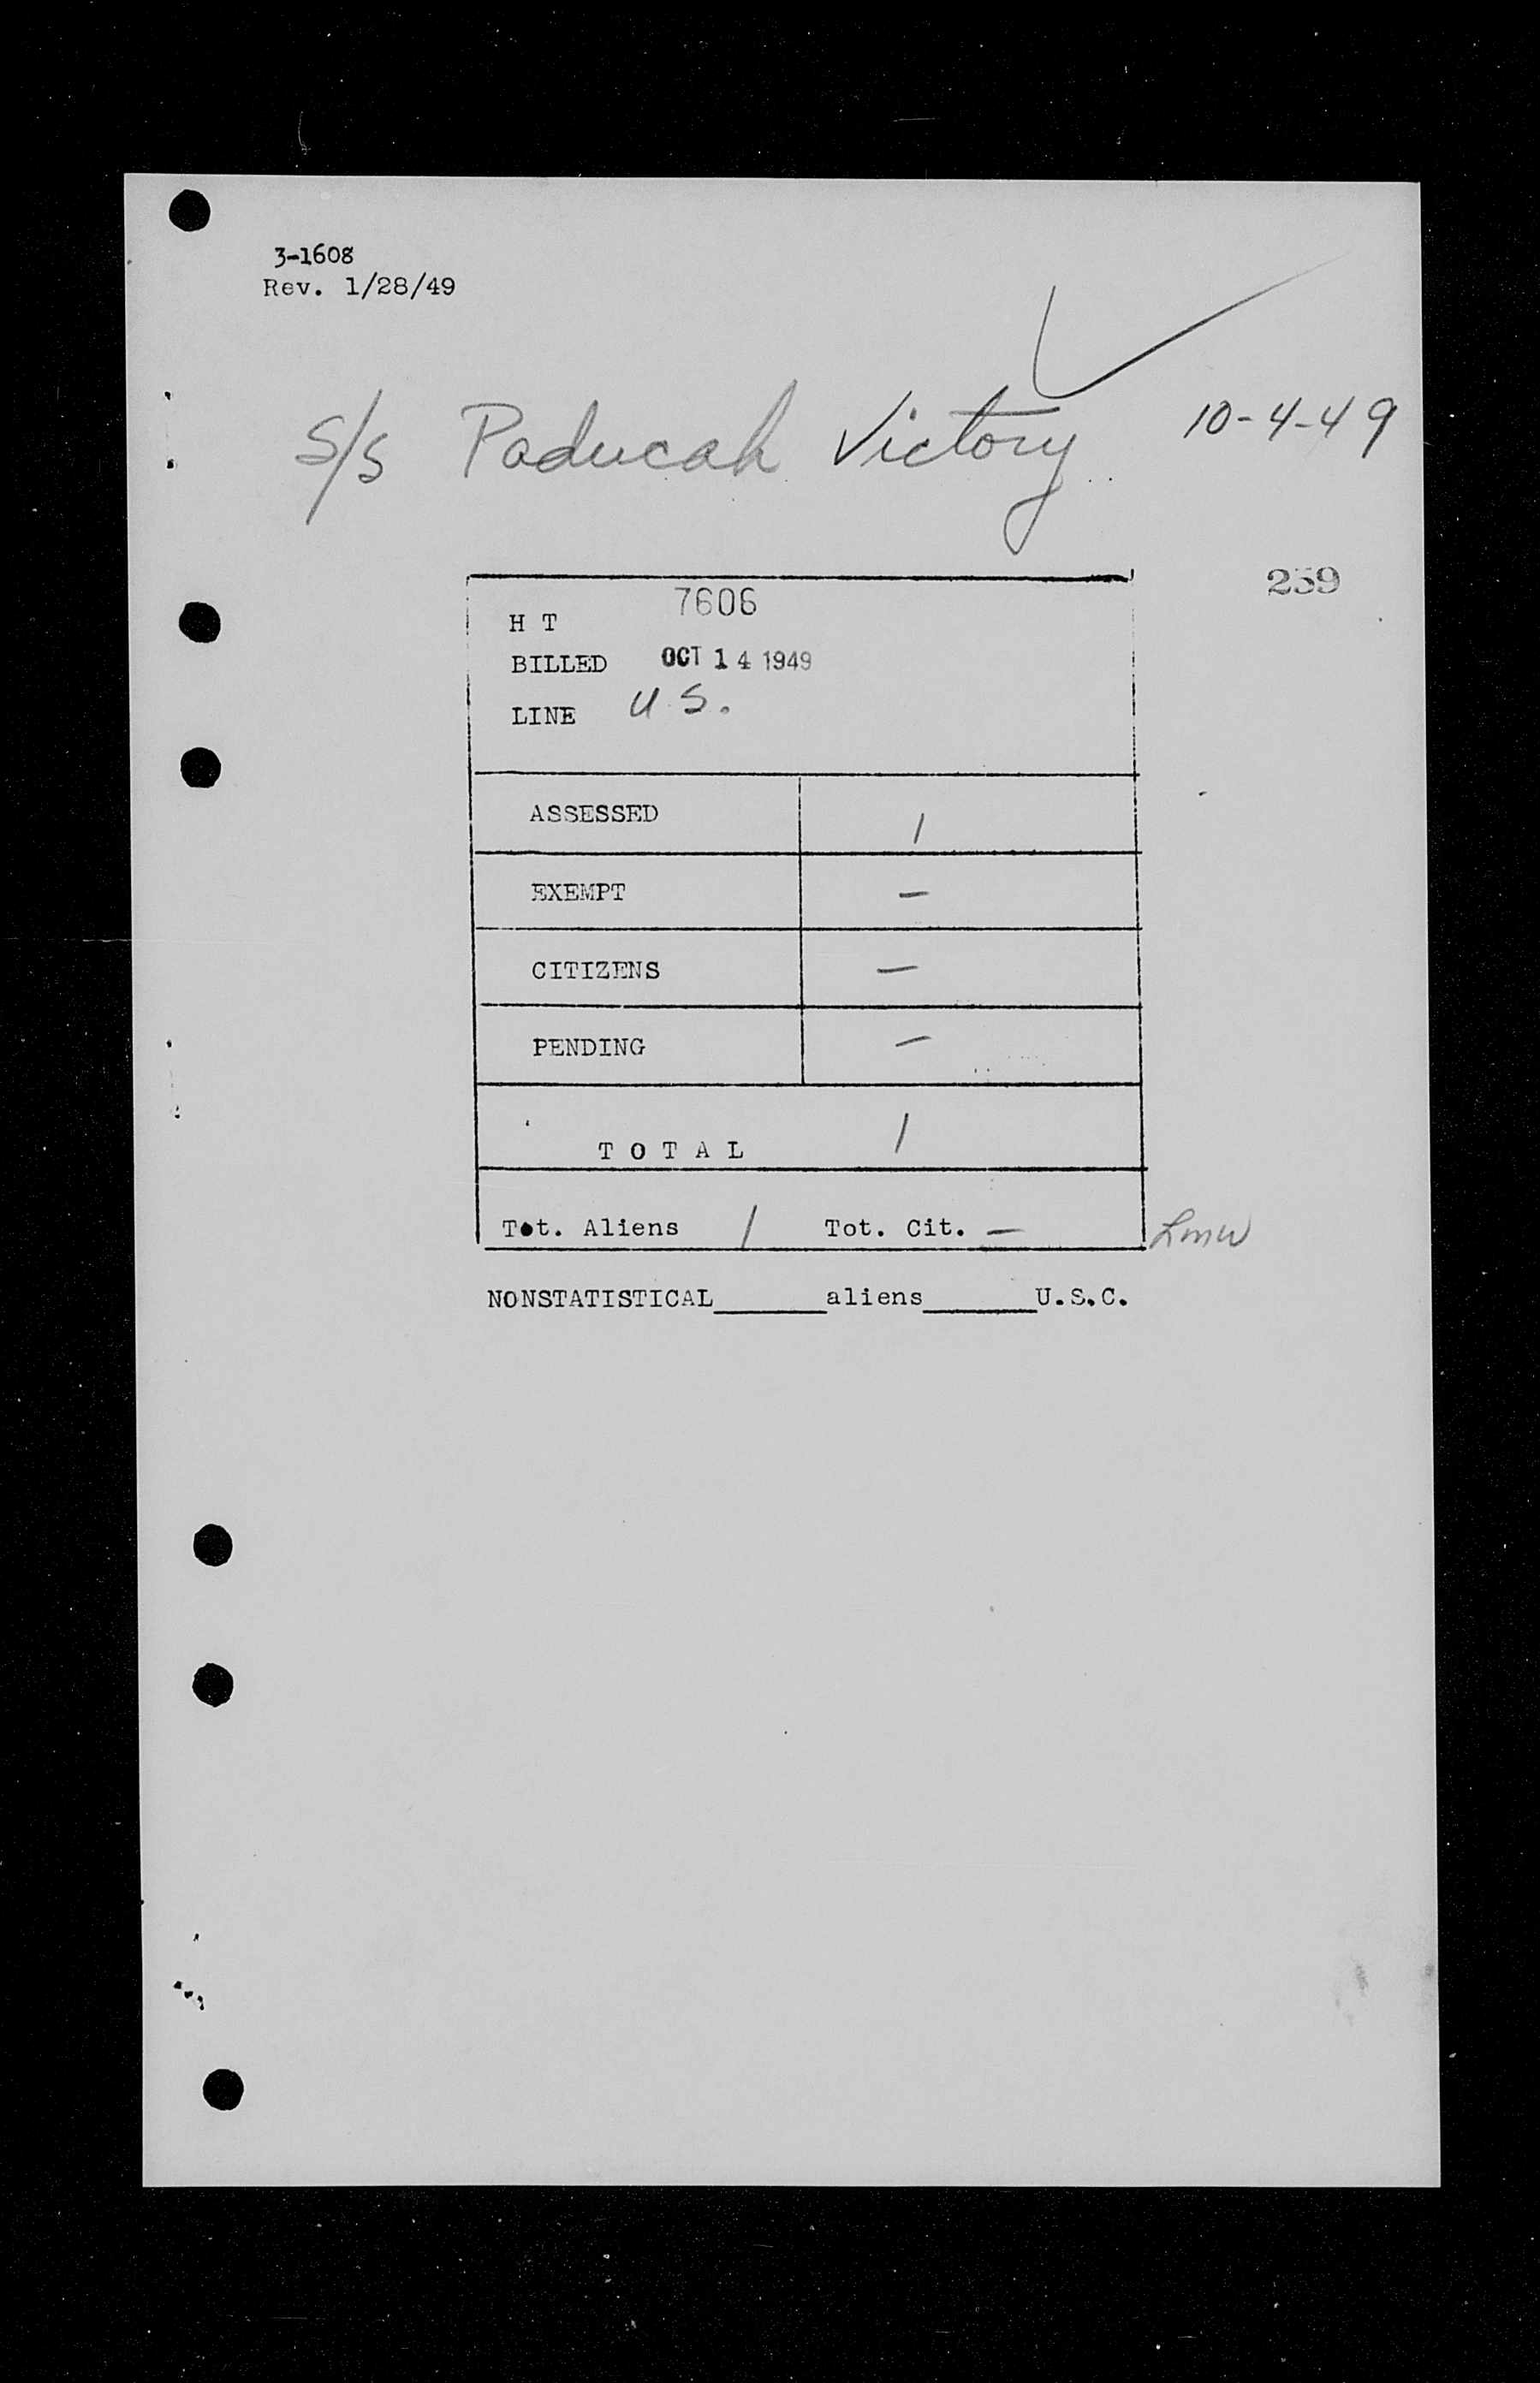 3-1608
Rev. 1/28/49
S/S Paducah Victory 10-4-49
259
H T 7606
BILLED OCT 14 1949
LINE U.S.
ASSESSED 1
EXEMPT –
CITIZENS –
PENDING –
T O T A L 1
Tot. Aliens 1 Tot. Cit. –
Lmw
NONSTATISTICAL______aliens______U.S.C.